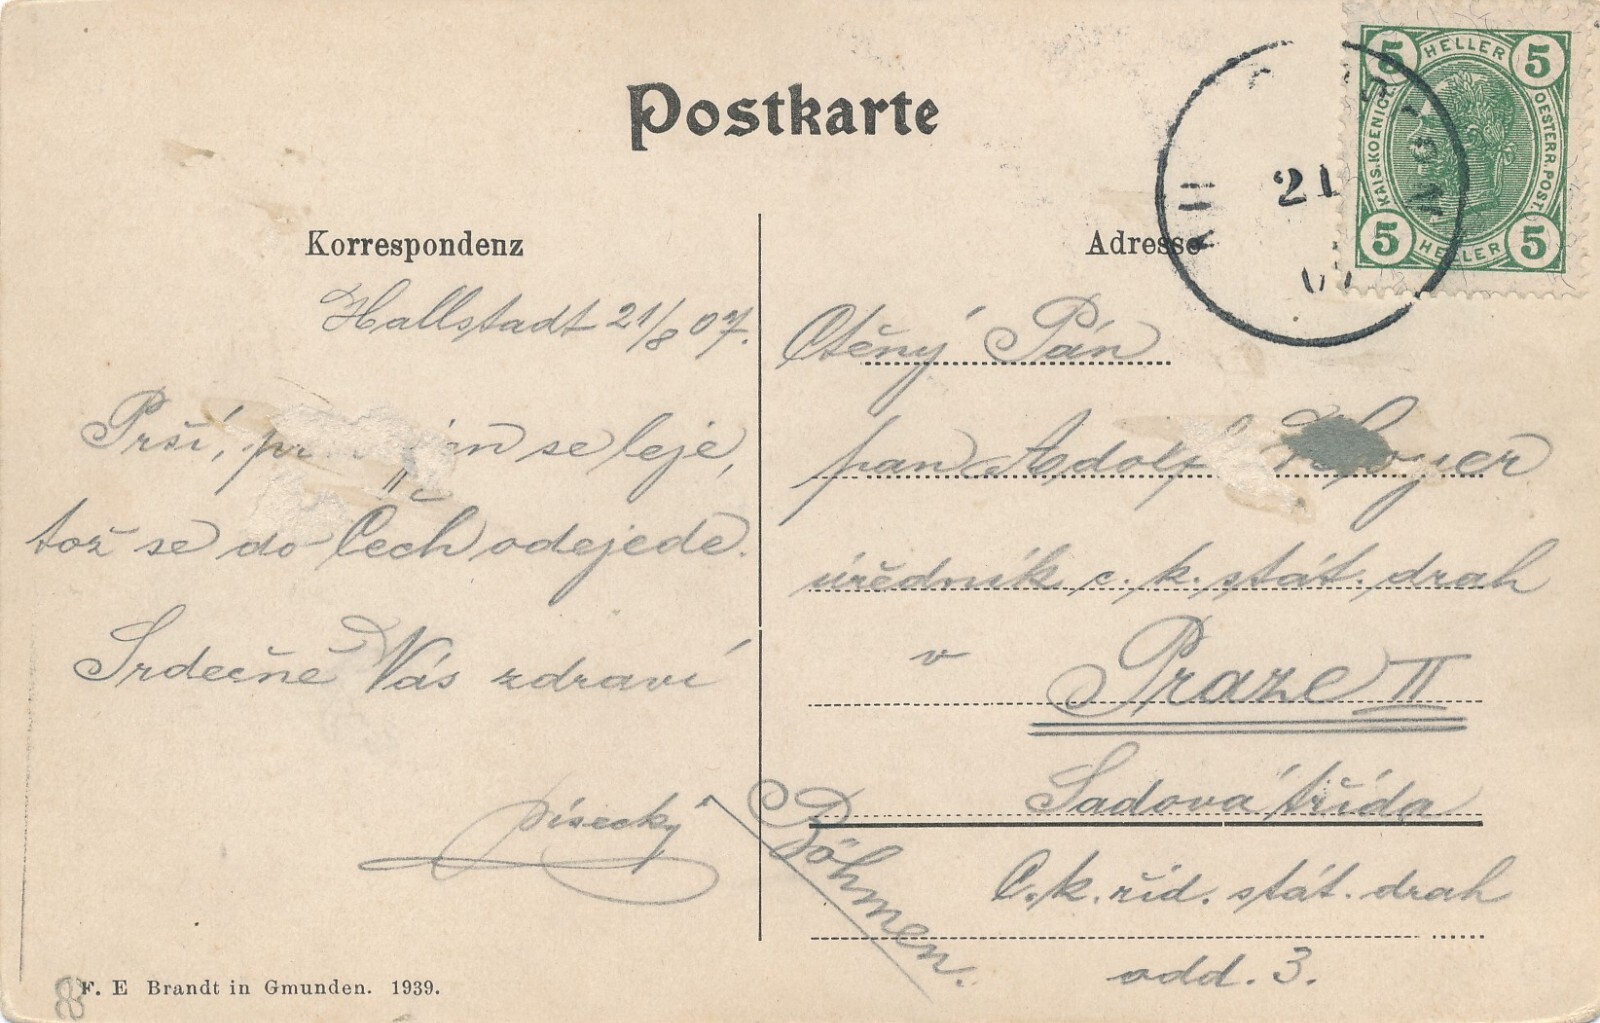 Postkarte
Korrespondenz
Hallstadt 21/8 07.
Prší, jen se leje,
tož se do Čech odejede.
Srdečně Vás zdraví
Písecký
F. E Brandt in Gmunden. 1939.
Adresse
Ctěný Pán
pan Adolf
úředník c. k. stát. drah
v Praze II
Sadová třída
C. k. řid. stát. drah
odd. 3.
Böhmen.
5 HELLER 5
KAIS. KOENIGL. OESTERR. POST.
5 HELLER 5
21